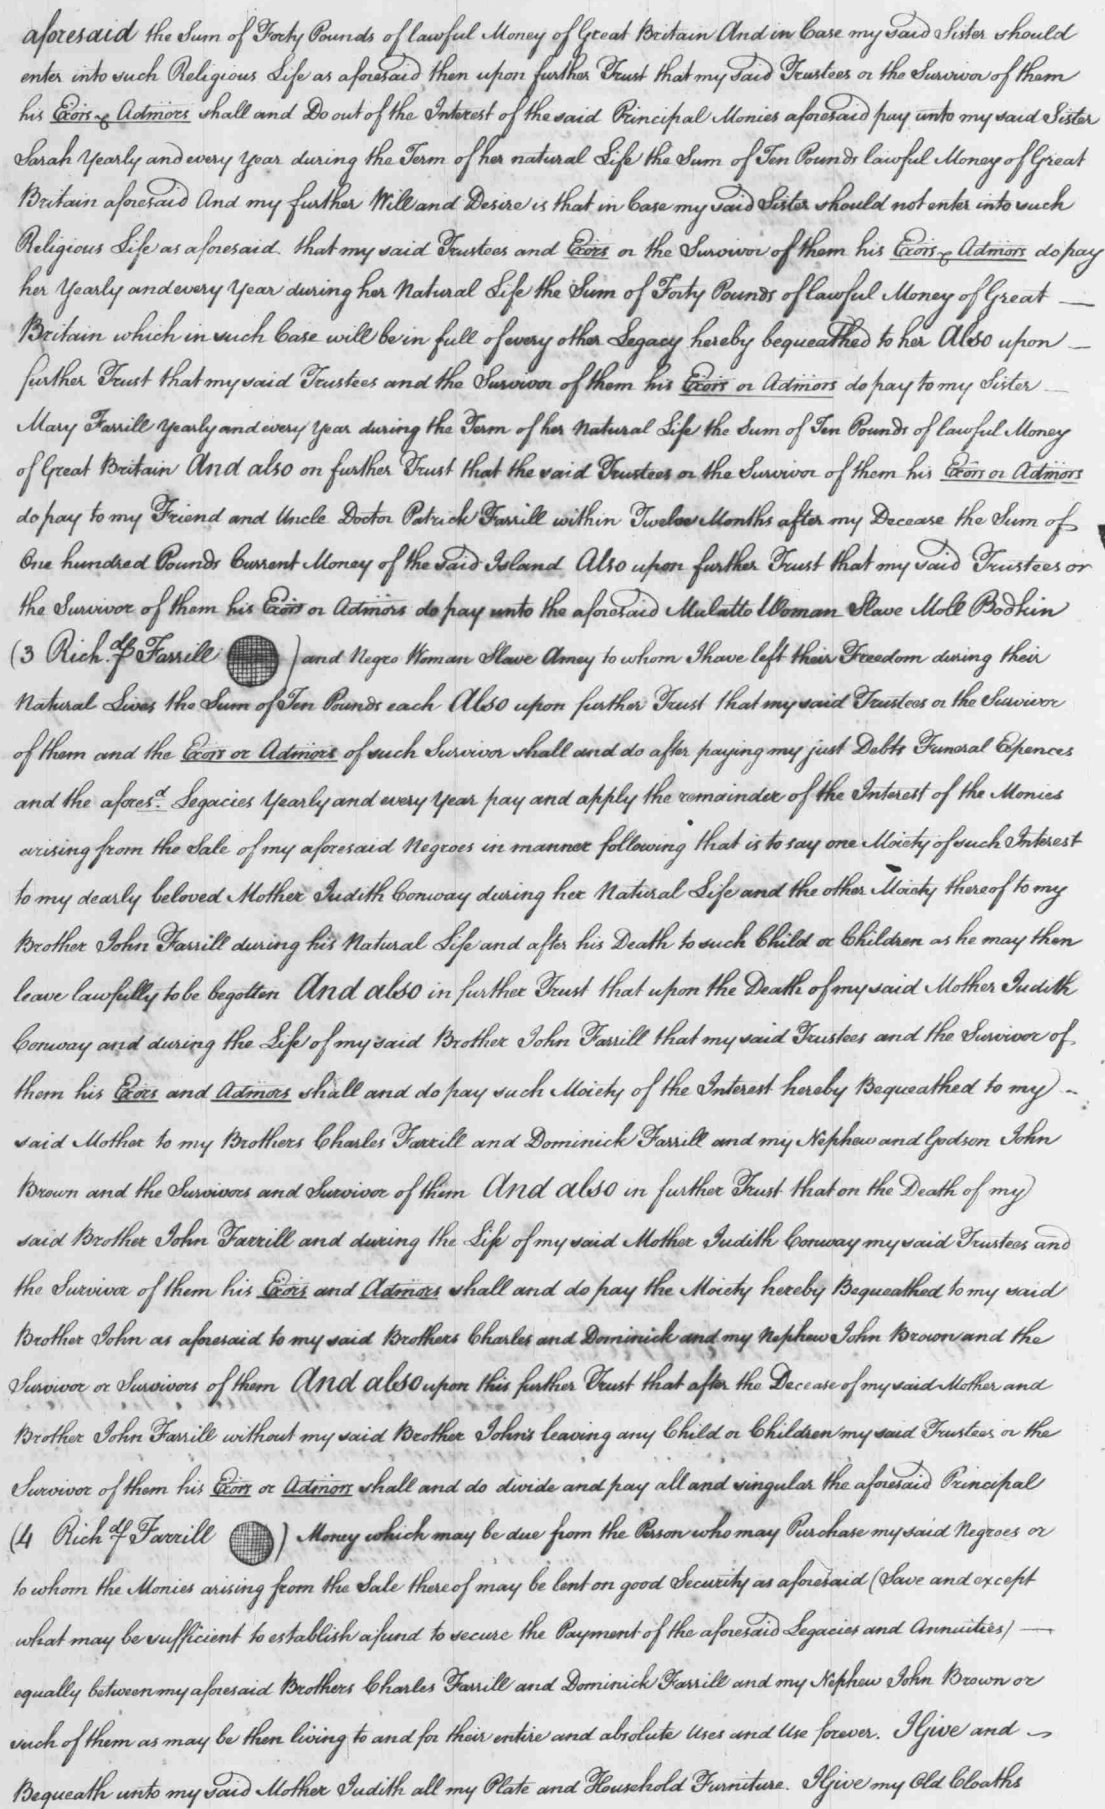 aforesaid the Sum of Forty Pounds of lawful Money of Great Britain And in Case my said Sister should
enter into such Religious Life as aforesaid then upon further Trust that my said Trustees or the Survivor of them
his Exors & Admors shall and Do out of the Interest of the said Principal Monies aforesaid pay unto my said Sister
Sarah Yearly and every Year during the Term of her natural Life the Sum of Ten Pounds lawful Money of Great
Britain aforesaid And my further Will and Desire is that in Case my said Sister should not enter into such
Religious Life as aforesaid. that my said Trustees and Exors or the Survivor of them his Exors & Admors do pay
her Yearly and every Year during her Natural Life the Sum of Forty Pounds of lawful Money of Great —
Britain which in such Case will be in full of every other Legacy hereby bequeathed to her Also upon —
further Trust that my said Trustees and the Survivor of them his Exors or Admors do pay to my Sister —
Mary Farrill Yearly and every Year during the Term of her Natural Life the Sum of Ten Pounds of lawful Money
of Great Britain And also on further Trust that the said Trustees or the Survivor of them his Exors or Admors
do pay to my Friend and Uncle Doctor Patrick Farrill within Twelve Months after my Decease the Sum of
One hundred Pounds Current Money of the said Island Also upon further Trust that my said Trustees or
the Survivor of them his Exors or Admors do pay unto the aforesaid Mulatto Woman Slave Moll Bodkin
(3 Richd. Farrill ) and Negro Woman Slave Amey to whom I have left their Freedom during their
Natural Lives the Sum of Ten Pounds each Also upon further Trust that my said Trustees or the Survivor
of them and the Exors or Admors of such Survivor shall and do after paying my just Debts Funeral Expences
and the aforesd. Legacies Yearly and every Year pay and apply the remainder of the Interest of the Monies
arising from the Sale of my aforesaid Negroes in manner following that is to say one Moiety of such Interest
to my dearly beloved Mother Judith Conway during her Natural Life and the other Moiety thereof to my
Brother John Farrill during his Natural Life and after his Death to such Child or Children as he may then
leave lawfully to be begotten And also in further Trust that upon the Death of my said Mother Judith
Conway and during the Life of my said Brother John Farrill that my said Trustees and the Survivor of
them his Exors and Admors shall and do pay such Moiety of the Interest hereby Bequeathed to my —
said Mother to my Brothers Charles Farrill and Dominick Farrill and my Nephew and Godson John
Brown and the Survivors and Survivor of them And also in further Trust that on the Death of my
said Brother John Farrill and during the Life of my said Mother Judith Conway my said Trustees and
the Survivor of them his Exors and Admors shall and do pay the Moiety hereby Bequeathed to my said
Brother John as aforesaid to my said Brothers Charles and Dominick and my Nephew John Brown and the
Survivor or Survivors of them And also upon this further Trust that after the Decease of my said Mother and
Brother John Farrill without my said Brother John's leaving any Child or Children my said Trustees or the
Survivor of them his Exors or Admors shall and do divide and pay all and singular the aforesaid Principal
(4 Richd. Farrill ) Money which may be due from the Person who may Purchase my said Negroes or
to whom the Monies arising from the Sale thereof may be lent on good Security as aforesaid (Save and except
what may be sufficient to establish a fund to secure the Payment of the aforesaid Legacies and Annuities) —
equally between my aforesaid Brothers Charles Farrill and Dominick Farrill and my Nephew John Brown or
such of them as may be then living to and for their entire and absolute Uses and Use forever. I Give and —
Bequeath unto my said Mother Judith all my Plate and Household Furniture. I Give my Old Cloaths